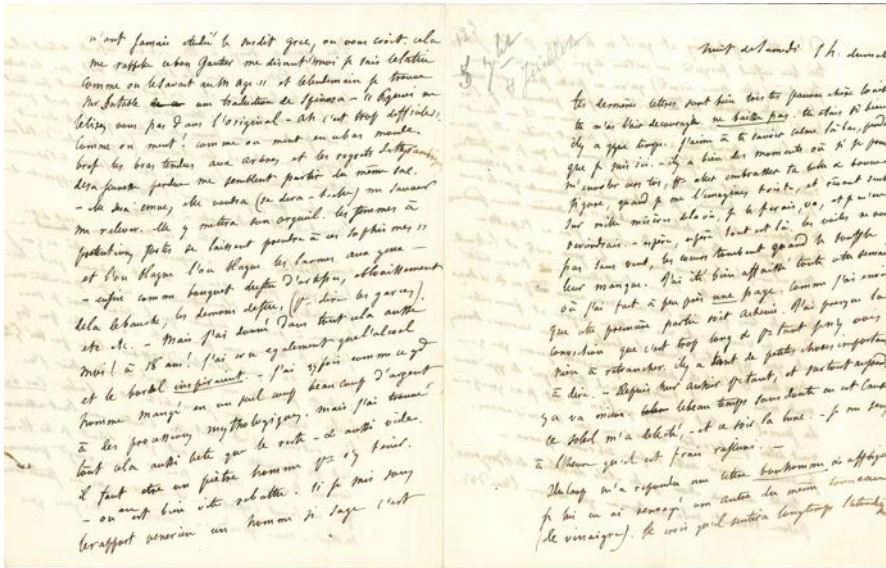 n'ont jamais étudié le susdit grec, on vous croit. cela
me rappelle ce bon Gautier me disant « moi je sais le latin
comme on le savait au m. age » et le lendemain je trouve
sur sa table une traduction de Spinosa – « Pourquoi ne
le lisez vous pas dans l'original – ah c'est trop difficile ».
Comme on ment! comme on ment en ce bas monde
bref les bras tendus aux arbres et les regrets
de sa jeunesse perdue me semblent partir du même sac.
– elle sera émue, elle voudra (se dira-t-elle) me sauver
me relever. elle y mettra son orgueil. les femmes à
se laissent prendre à ces sophismes »
et l'on blague l'on blague les larmes aux yeux –
– enfin comme bouquet du feu d'artifice, éblouissement
de la débauche, les démons de feu, (p. dire les garces).
etc etc. – Mais j'ai donné dans tout cela aussi
moi! à 18 ans! J'ai cru également que l'alcool
et le bordel inspiraient. – J'ai qqfois comme ce gd
homme mangé en un seul coup beaucoup d'argent
à des processions mythologiques. mais j'ai trouvé
tout cela aussi bête que le reste – & aussi vide
il faut être un piètre homme pr s'y tenir.
– ou on en est bien vite rebattu. Si je suis sous
le rapport vénérien un homme si sage c'est
nuit de samedi 1 h. du mat
tes dernières lettres sont bien tristes pauvre chère Louise
tu m'as l'air découragée ne baisse pas. tu étais si bien
il y a qque temps. j'aime à te savoir calme là-bas, pend
que je suis ici. – il y a bien des moments où si je pouv
m'envoler vers toi, pr aller embrasser ta belle & bonne
figure, quand je me l'imagine triste, et rêvant seule
sur mille misères de la vie, je le ferais, va, et
reviendrais. – espère, espère tout est là. les voiles ne vont
pas sans vent, les cœurs tombent quand le souffle
leur manque. J'ai été bien affaissé toute cette semaine
où j'ai fait à peu près une page. comme j'ai envie
que cette première partie soit achevée. J'ai presque la
conviction que c'est trop long & pr tant je n'y vois
rien à retrancher. il y a tant de petites choses important
à dire. – Depuis hier au soir pr tant, et surtout aujourd
ça va mieux. le beau temps sans doute en est cause
le soleil m'a délecté, – et ce soir la lune. – je me sens
à l'heure qu'il est frais
m'a répondu une lettre bonhomme &
je lui en ai renvoyé une autre du même tonneau
(de vinaigre). Je crois qu'il sentira longtemps